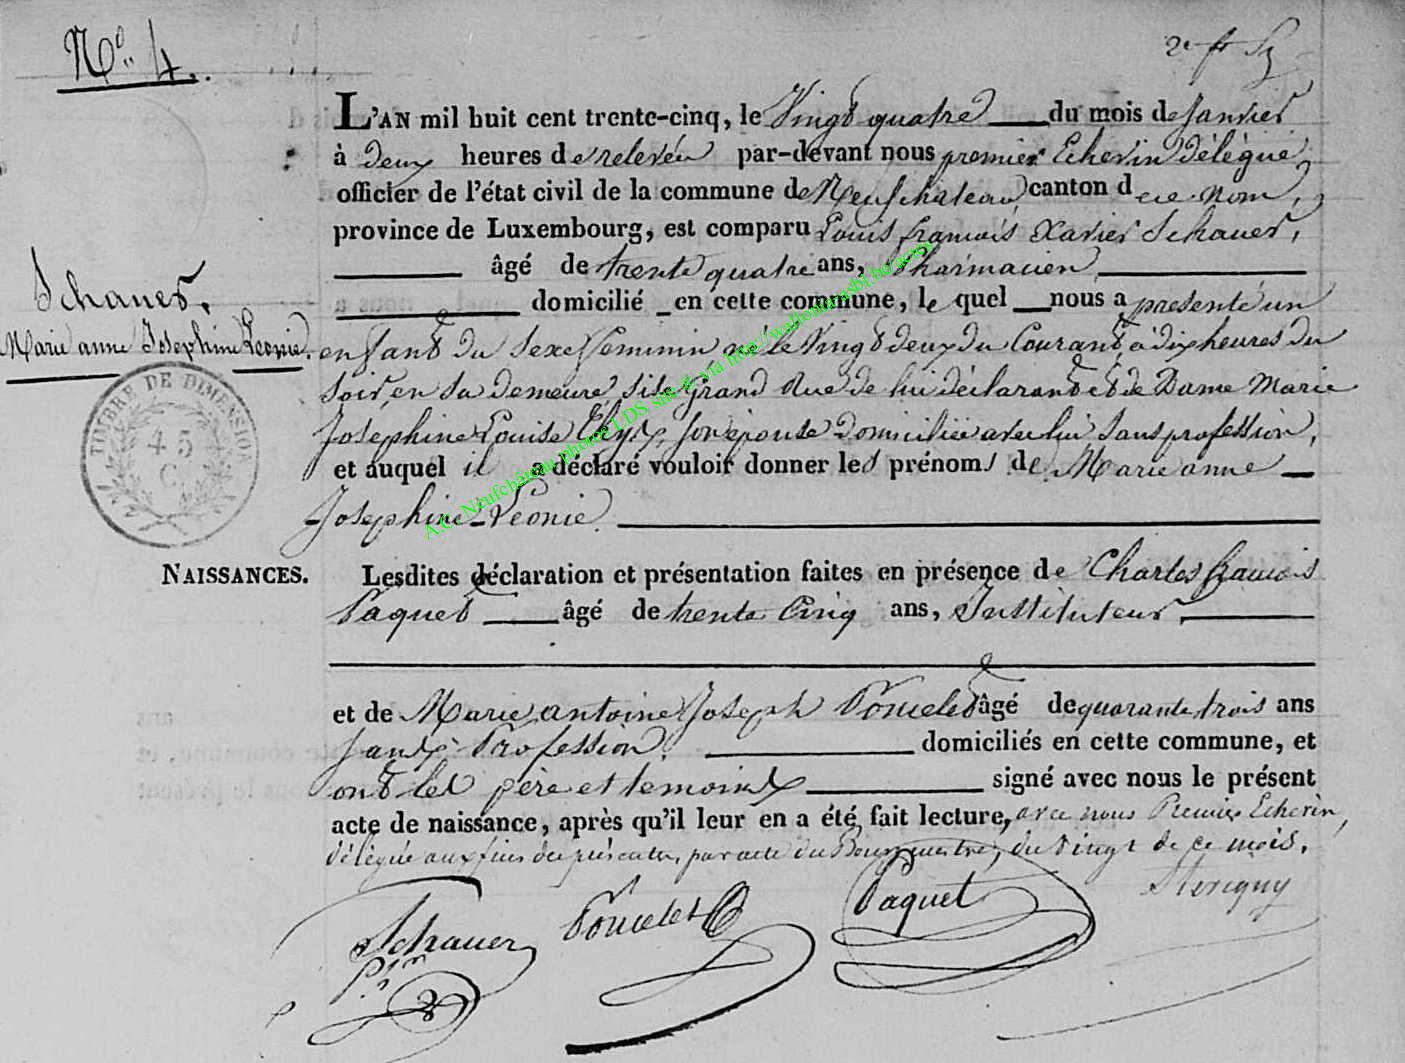 N° 4.
L'AN mil huit cent trente-cinq, le Vingt quatre du mois de Janvier
à deux heures de relevée par-devant nous premier Echevin délégué
officier de l'état civil de la commune de Neufchateau, canton de ce nom,
province de Luxembourg, est comparu Louis françois Xavier Schauer,
âgé de trente quatre ans, Pharmacien
domicilié en cette commune, le quel nous a presenté un
enfant du Sexe feminin, né le Vingt deux du Courant, à dix heures du
Soir, en sa demeure, sise Grand Rue de lui déclarant et de Dame Marie
Josephine Louise son épouse domiciliée avec lui sans profession,
et auquel il a déclaré vouloir donner les prénoms de Marie anne
Josephine Leonie.
Schauer.
Marie anne Josephine Leonie.
TIMBRE DE DIMENSION
45
C
NAISSANCES.
Lesdites déclaration et présentation faites en présence de Charles françois
Paquet âgé de trente Cinq ans, Instituteur,
et de Marie antoine Joseph Poncelet âgé de quarante trois ans
Sans Profession, domiciliés en cette commune, et
ont les père et temoins signé avec nous le présent
acte de naissance, après qu'il leur en a été fait lecture, avec nous Premier Echevin,
délégué aux fins des présentes, par acte du Bourgmestre, du vingt de ce mois.
Schauer
Phn
Poncelet
Paquet
A.C. Neufchâteau photos LDS, site & via http://walloniaasbl.be/actes